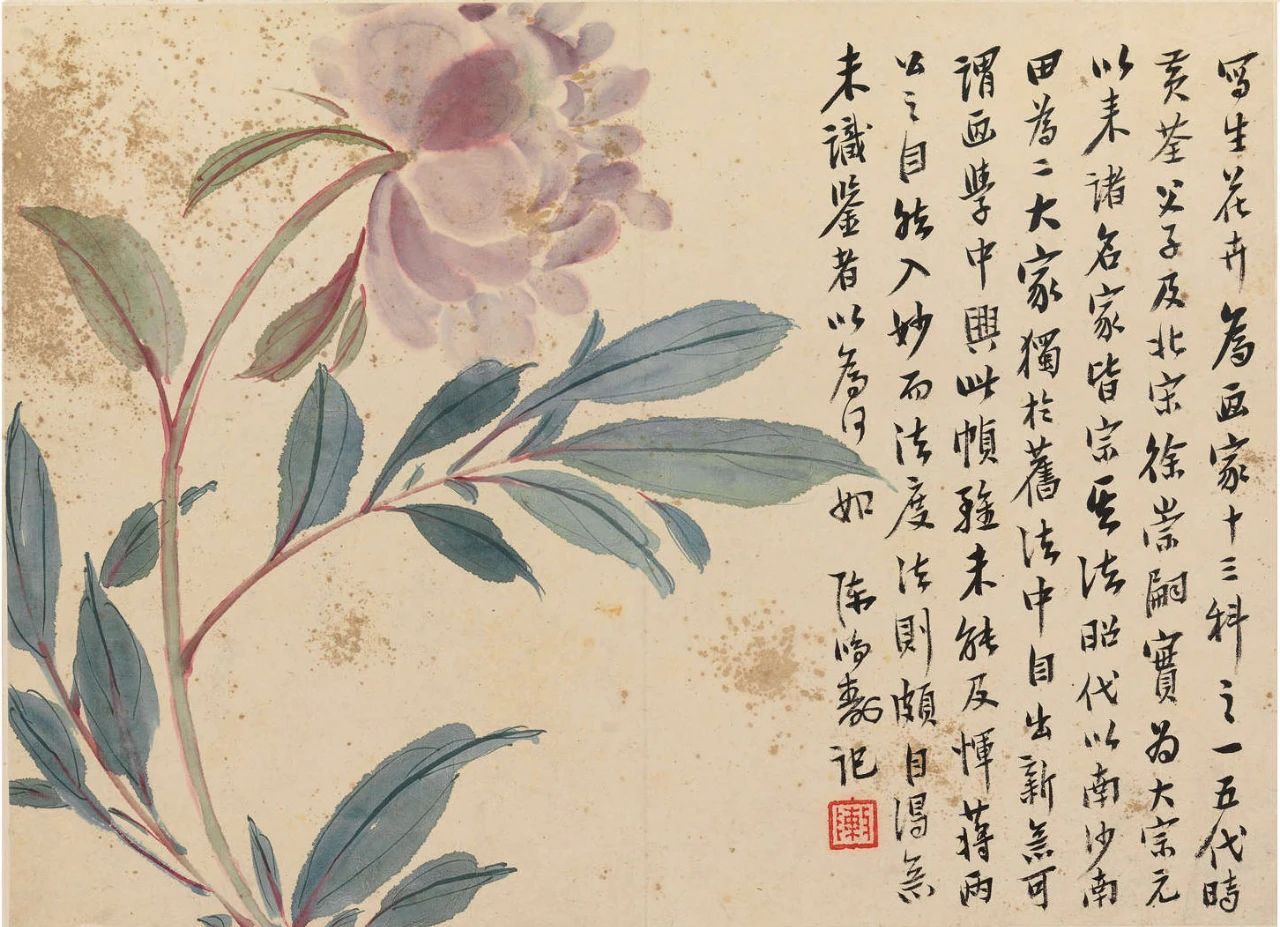 寫生花卉為画家十三科之一五代時
黃荃父子及北宋徐崇嗣實為大宗元
以来諸名家皆宗其法昭代以南沙南
田為二大家獨於舊法中自出新意可
謂画學中興此幀雖未能及惲蔣兩
公之自然入妙而法度法則頗自得意
未識鑒者以為何如 陳鴻壽記